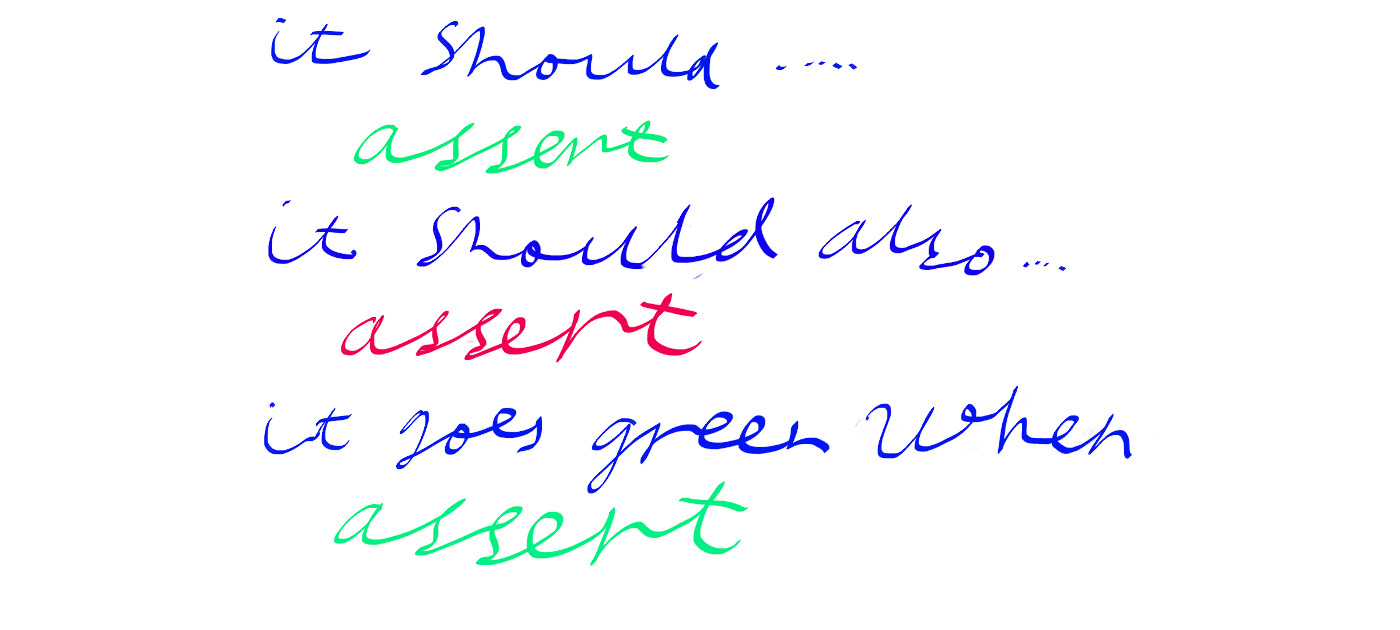 it should .....
assert
it should also ...
assert
it goes green when
assert